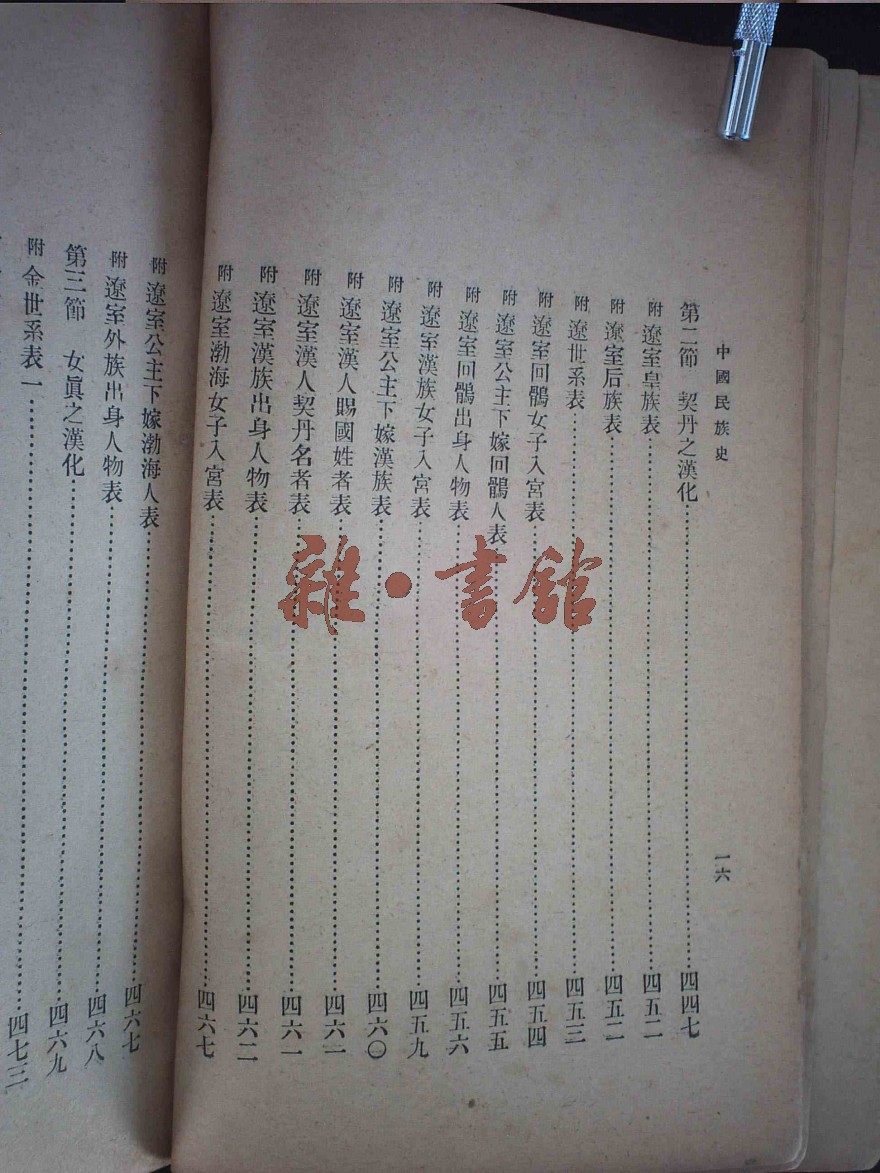 中國民族史
一六
第二節 契丹之漢化……四四七
附 遼室皇族表……四五二
附 遼室后族表……四五二
附 遼世系表……四五三
附 遼室回鶻女子入宮表……四五四
附 遼室公主下嫁回鶻人表……四五五
附 遼室回鶻出身人物表……四五六
附 遼室漢族女子入宮表……四五九
附 遼室公主下嫁漢族表……四六〇
附 遼室漢人賜國姓者表……四六一
附 遼室漢人契丹名者表……四六一
附 遼室漢族出身人物表……四六二
附 遼室渤海女子入宮表……四六七
附 遼室公主下嫁渤海人表……四六七
附 遼室外族出身人物表……四六八
第三節 女眞之漢化……四六九
附 金世系表一……四七三
雜·書館